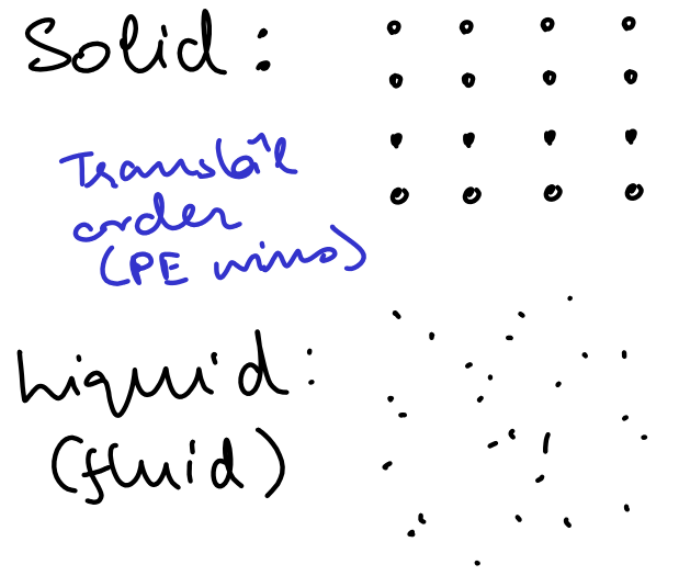 Solid :
Translâ'l
order
(PE wins)
Liquid :
(fluid)